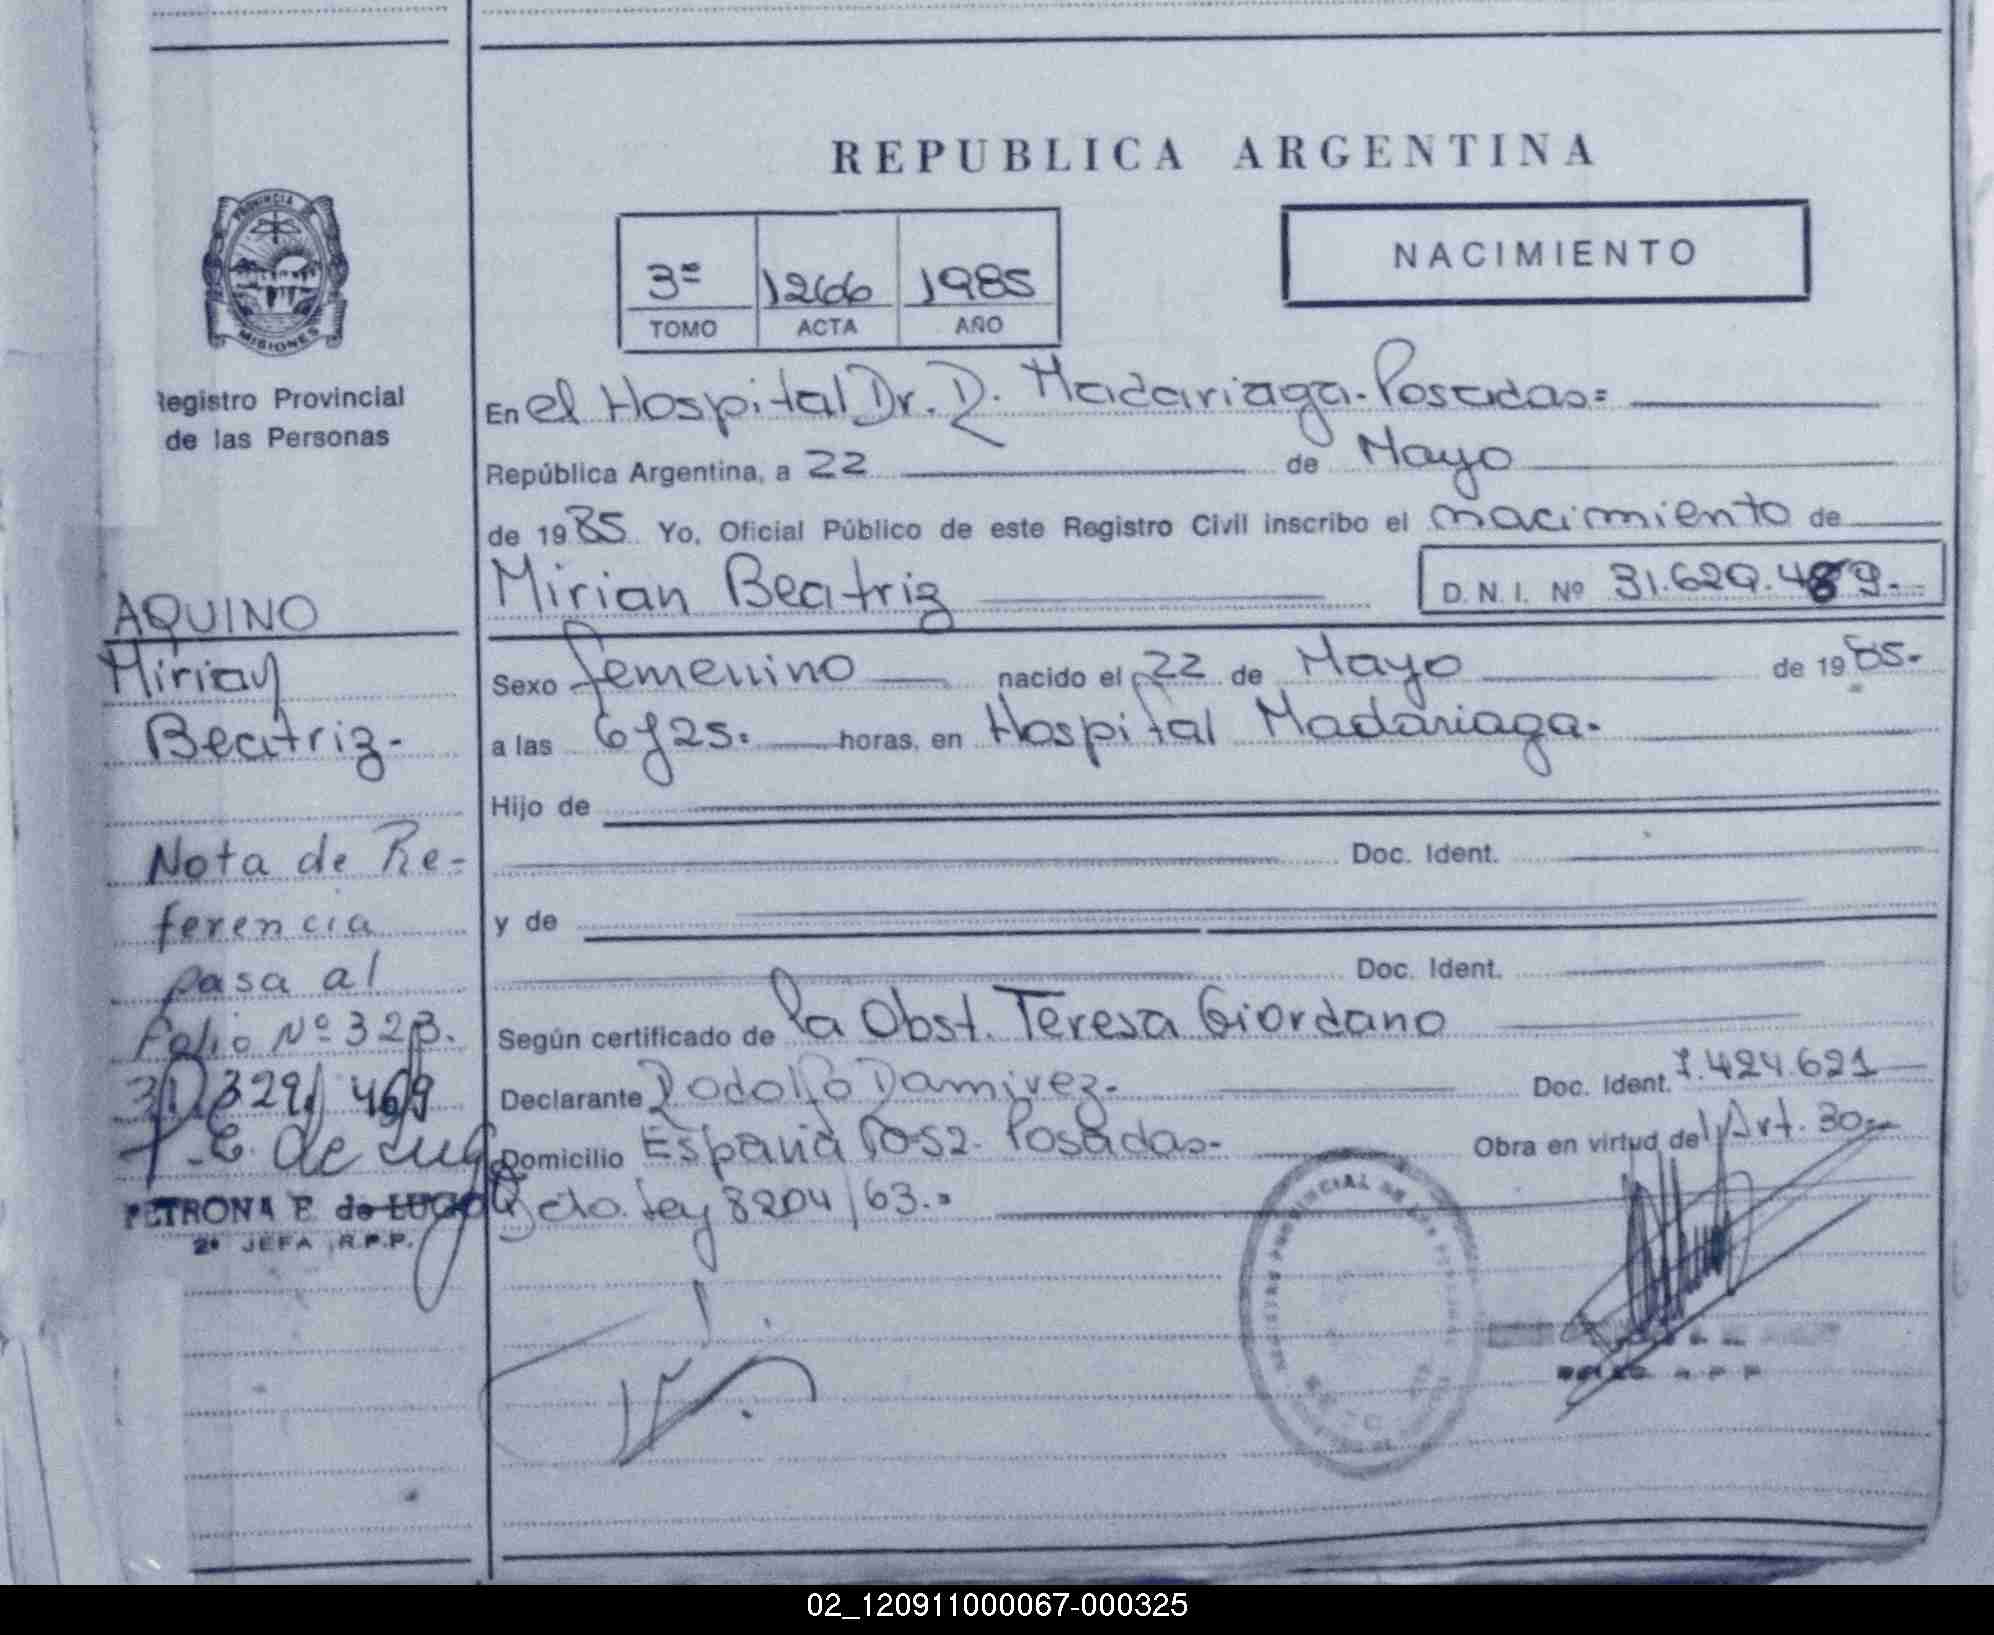 REPUBLICA ARGENTINA
PROVINCIA DE
MISIONES
3º 1266 1985
TOMO ACTA AÑO
NACIMIENTO
Registro Provincial
de las Personas
En el Hospital Dr. R. Madariaga. Posadas=
República Argentina, a 22 de Mayo
de 1985 Yo, Oficial Público de este Registro Civil inscribo el nacimiento de
Mirian Beatriz D. N. I. Nº 31.629.489.
AQUINO
Mirian
Beatriz-
Sexo femenino nacido el 22 de Mayo de 1985.
a las 6 y 25. horas, en Hospital Madariaga.
Hijo de
Doc. Ident.
y de
Doc. Ident.
Según certificado de la Obst. Teresa Giordano
Declarante Rodolfo Ramirez. Doc. Ident. 7.424.621
Domicilio España Posadas- Obra en virtud del Art. 30-
Dcto. Ley 8204/63.=
Nota de Re-
ferencia
pasa al
Folio Nº 323.
PETRONA E de LUGO
2º JEFA R.P.P.
02_120911000067-000325